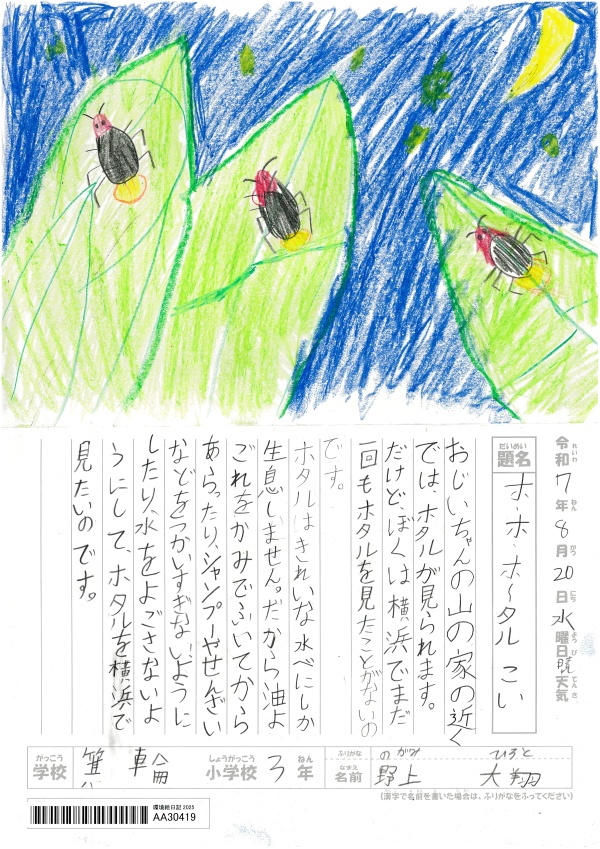 令和れいわ7年ねん8月がつ20日にち水曜日ようび晴天気てんき
題名だいめい ホ、ホ、ホ〜タル こい
おじいちゃんの山の家の近く
では、ホタルが見られます。
だけど、ぼくは横浜でまだ
一回もホタルを見たことがないの
です。
ホタルはきれいな水べにしか
生息しません。だから油よ
ごれをかみでふいてから
あらったり、シャンプーやせんざい
などをつかいすぎないように
したり、水をよごさないよ
うにして、ホタルを横浜で
見たいのです。
学校がっこう 箕輪 小学校しょうがっこう 3年ねん
ふりがな のがみ ひろと
名前なまえ 野上 大翔
(漢字で名前を書いた場合は、ふりがなをふってください)
環境絵日記 2025
AA30419